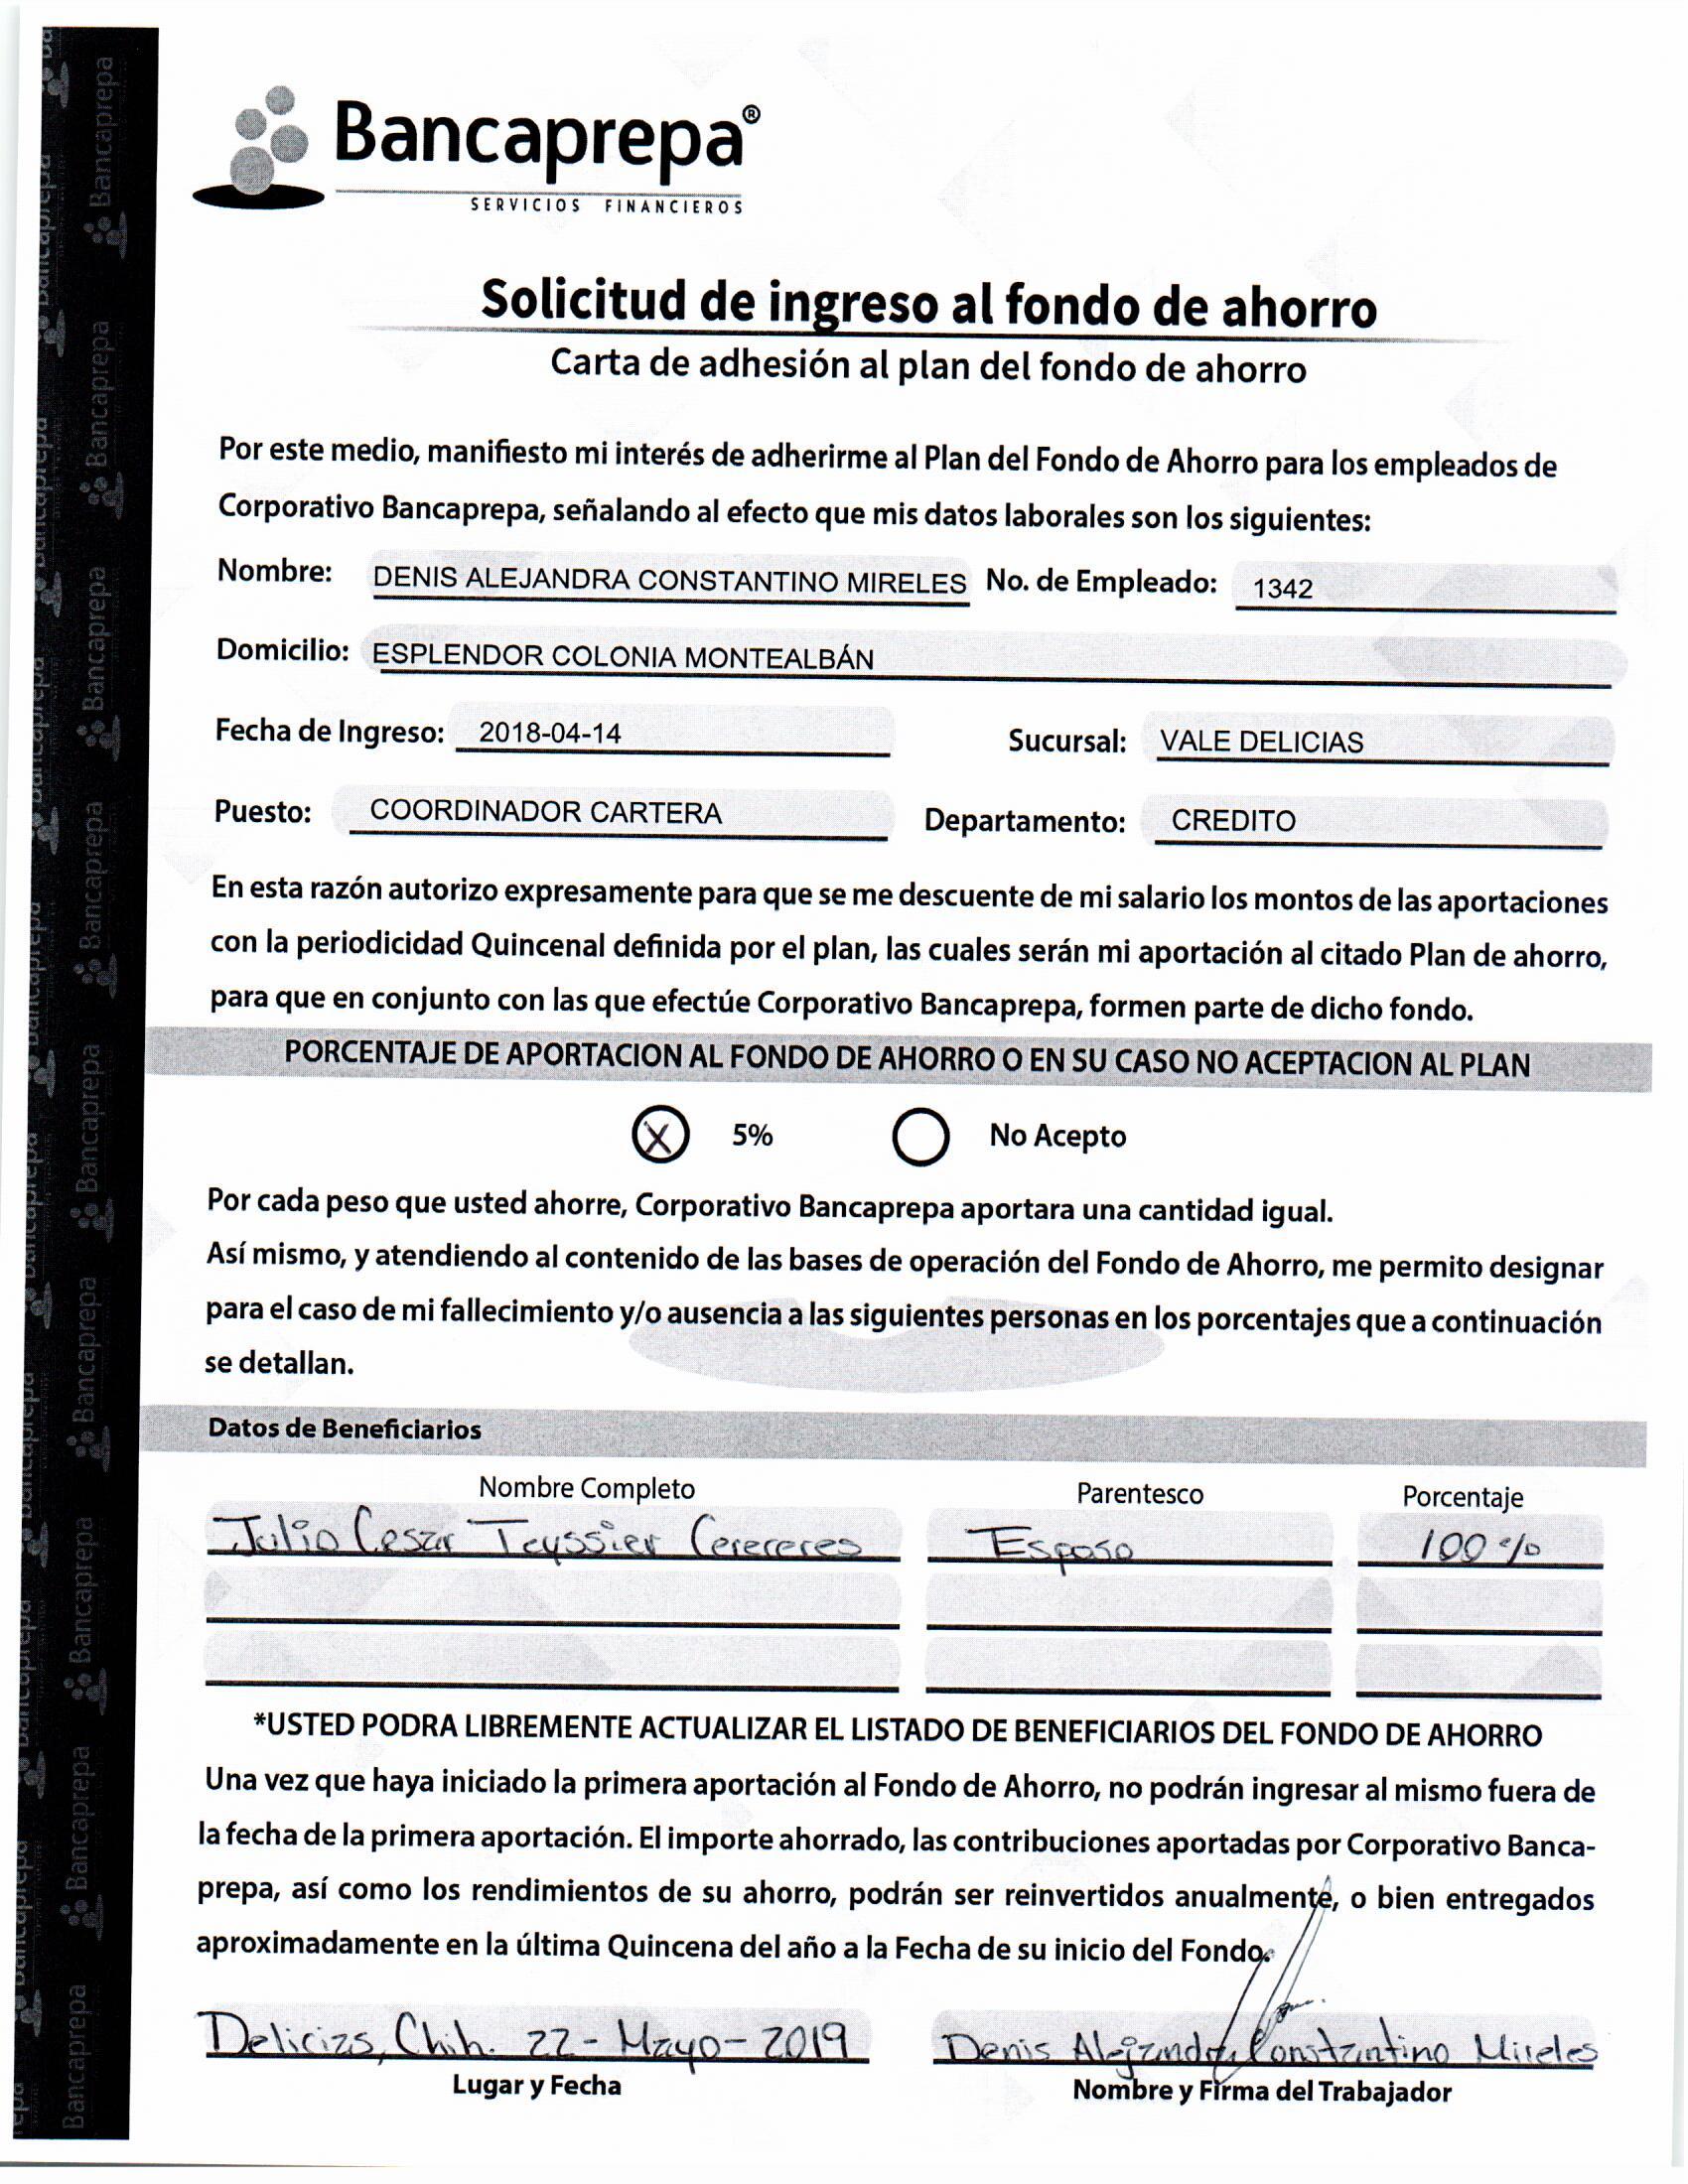 Bancaprepa®
SERVICIOS FINANCIEROS
Solicitud de ingreso al fondo de ahorro
Carta de adhesión al plan del fondo de ahorro
Por este medio, manifiesto mi interés de adherirme al Plan del Fondo de Ahorro para los empleados de
Corporativo Bancaprepa, señalando al efecto que mis datos laborales son los siguientes:
Nombre: DENIS ALEJANDRA CONSTANTINO MIRELES No. de Empleado: 1342
Domicilio: ESPLENDOR COLONIA MONTEALBÁN
Fecha de Ingreso: 2018-04-14 Sucursal: VALE DELICIAS
Puesto: COORDINADOR CARTERA Departamento: CREDITO
En esta razón autorizo expresamente para que se me descuente de mi salario los montos de las aportaciones
con la periodicidad Quincenal definida por el plan, las cuales serán mi aportación al citado Plan de ahorro,
para que en conjunto con las que efectúe Corporativo Bancaprepa, formen parte de dicho fondo.
PORCENTAJE DE APORTACION AL FONDO DE AHORRO O EN SU CASO NO ACEPTACION AL PLAN
X 5% No Acepto
Por cada peso que usted ahorre, Corporativo Bancaprepa aportara una cantidad igual.
Así mismo, y atendiendo al contenido de las bases de operación del Fondo de Ahorro, me permito designar
para el caso de mi fallecimiento y/o ausencia a las siguientes personas en los porcentajes que a continuación
se detallan.
Datos de Beneficiarios
Nombre Completo Parentesco Porcentaje
Julio Cesar Teyssier Cereceres Esposo 100%
*USTED PODRA LIBREMENTE ACTUALIZAR EL LISTADO DE BENEFICIARIOS DEL FONDO DE AHORRO
Una vez que haya iniciado la primera aportación al Fondo de Ahorro, no podrán ingresar al mismo fuera de
la fecha de la primera aportación. El importe ahorrado, las contribuciones aportadas por Corporativo Banca-
prepa, así como los rendimientos de su ahorro, podrán ser reinvertidos anualmente, o bien entregados
aproximadamente en la última Quincena del año a la Fecha de su inicio del Fondo.
Delicias, Chih. 22-Mayo-2019 Denis Alejandra Constantino Mireles
Lugar y Fecha Nombre y Firma del Trabajador